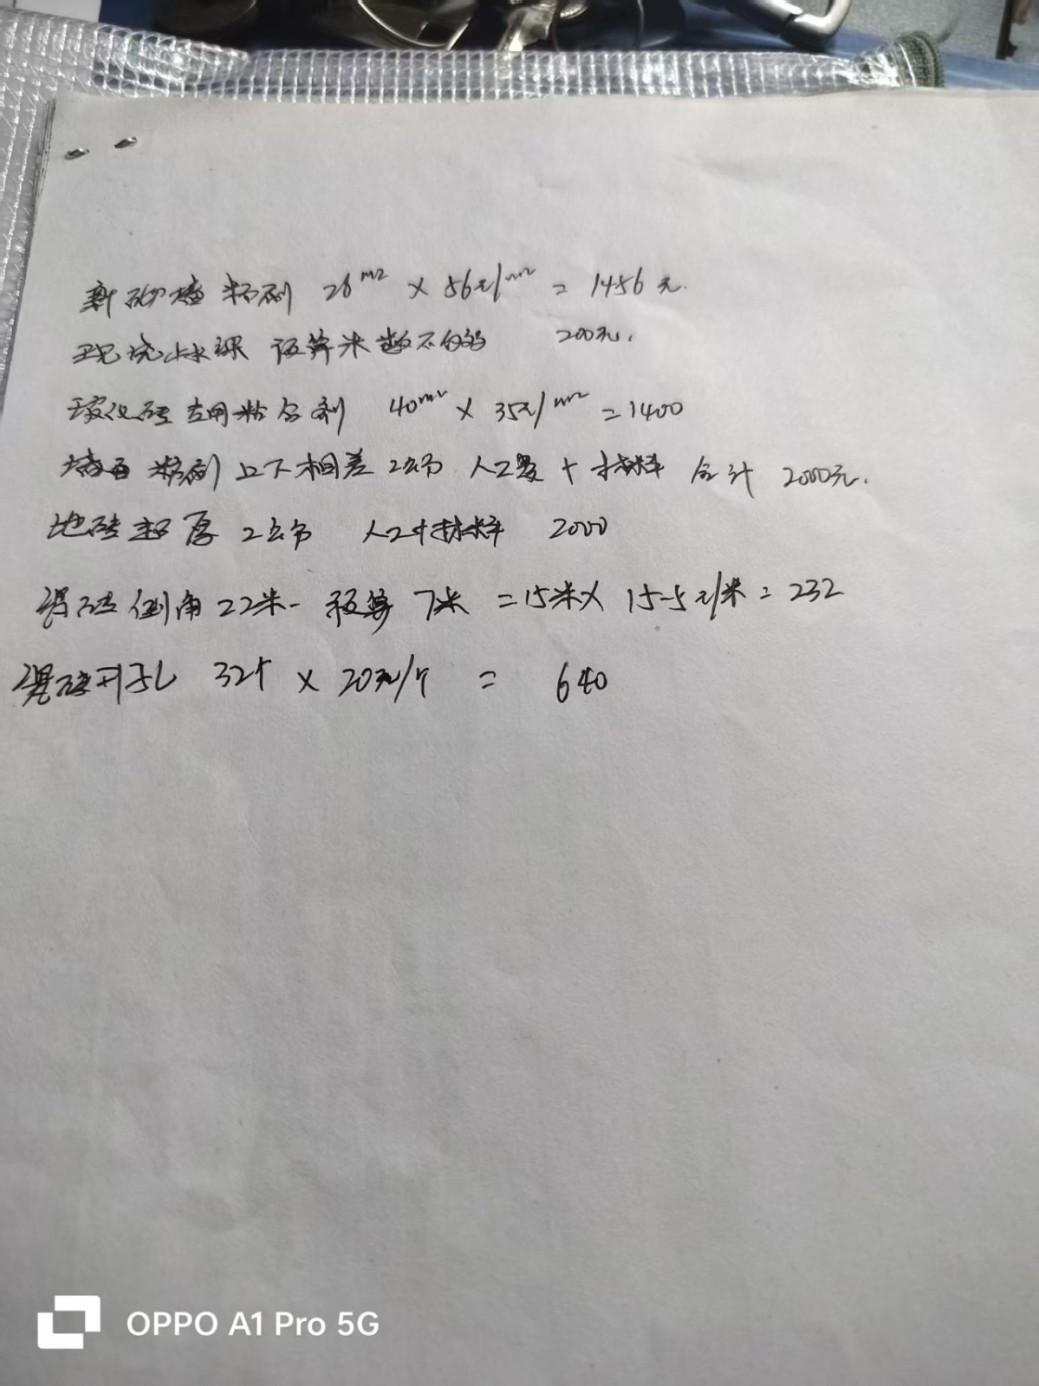 新砌墙粉刷 26m2 × 56元/m2 = 1456元.
现浇 预算米数不够 200元.
玻化砖专用粘合剂 40m2 × 35元/m2 = 1400
墙面粉刷上下相差2公分 人工费 + 材料 合计 2000元.
地砖超厚2公分 人工+材料 2000
瓷砖倒角22米 - 预算7米 = 15米 × 15-5元/米 = 232
瓷砖开孔 32个 × 20元/个 = 640
OPPO A1 Pro 5G